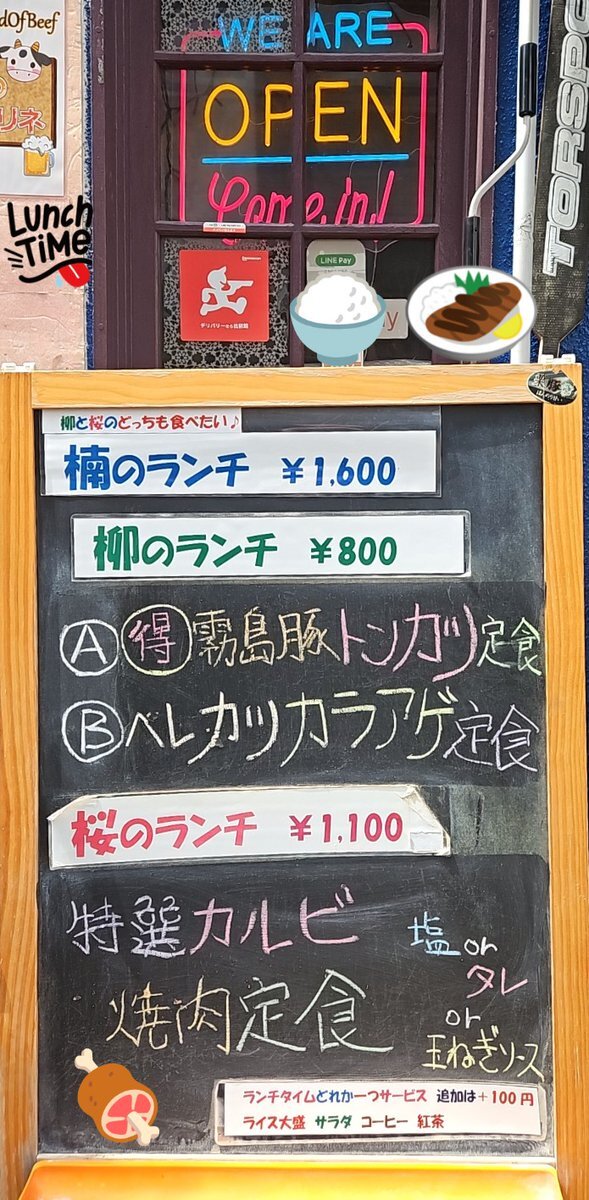 dOfBeef
リネ
WE ARE
OPEN
Come in!
LUNCH
TIME
TORSPO
LINE Pay
デリバリーなら出前館
ay
柳と桜のどっちも食べたい♪
楠のランチ ¥1,600
柳のランチ ¥800
Ⓐ 得 霧島豚トンカツ定食
Ⓑ ヘレカツカラアゲ定食
桜のランチ ¥1,100
特選カルビ
焼肉定食
塩 or
タレ
or
玉ねぎソース
ランチタイムどれか一つサービス 追加は+100円
ライス大盛 サラダ コーヒー 紅茶